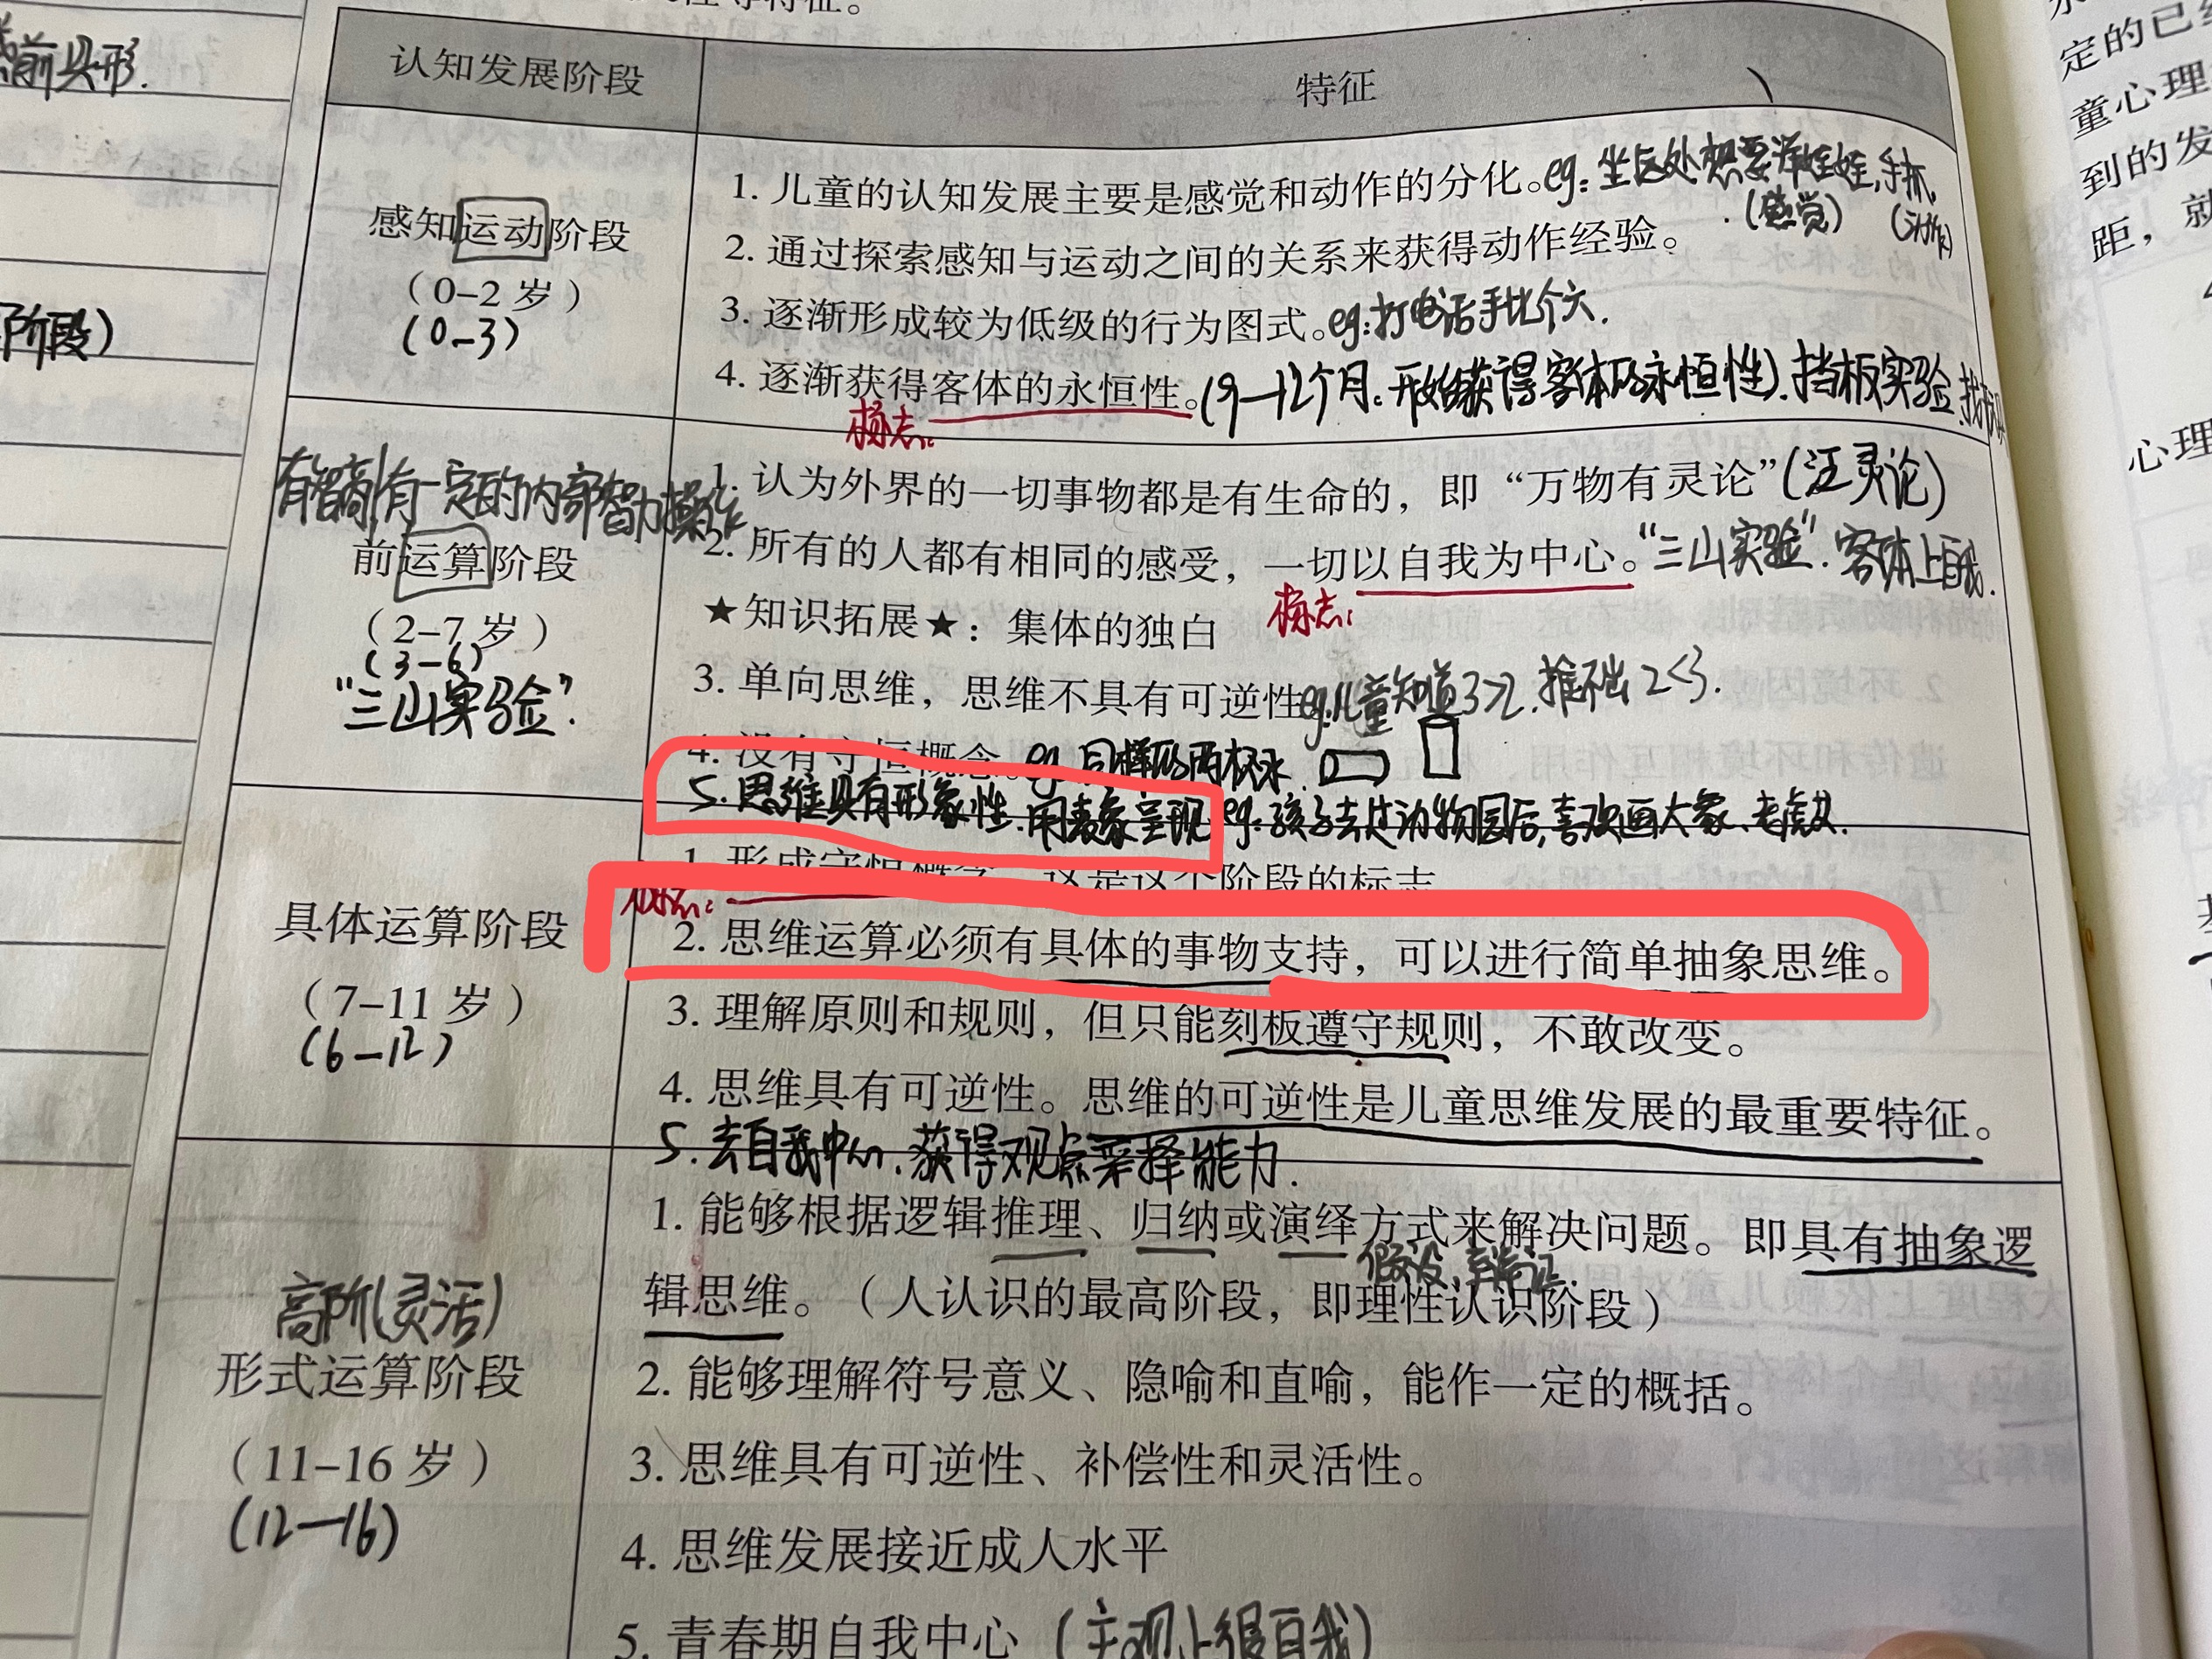 前具形.
阶段)
认知发展阶段
特征
感知运动阶段
(0-2 岁)
(0-3)
1. 儿童的认知发展主要是感觉和动作的分化。eg:坐远处想要洋娃娃,手抓.
(感觉) (动作)
2. 通过探索感知与运动之间的关系来获得动作经验。
3. 逐渐形成较为低级的行为图式。eg:打电话手比个六.
4. 逐渐获得客体的永恒性。(9—12个月:开始获得客体的永恒性).挡板实验.
标志:
有智商,有一定的内部智力操作
前运算阶段
(2-7 岁)
(3-6)
"三山实验".
1. 认为外界的一切事物都是有生命的,即“万物有灵论”(泛灵论)
2. 所有的人都有相同的感受,一切以自我为中心。"三山实验".客体上自我.
标志:
★知识拓展★:集体的独白
3. 单向思维,思维不具有可逆性eg:儿童知道3>2.推不出2<3.
4. 没有守恒概念。eg.同样的两杯水.
5.思维具有形象性.用表象呈现 eg:孩子去过动物园后,喜欢画大象、老虎.
具体运算阶段
(7-11 岁)
(6—12)
1. 形成守恒概念,这是这个阶段的标志
标志:
2. 思维运算必须有具体的事物支持,可以进行简单抽象思维。
3. 理解原则和规则,但只能刻板遵守规则,不敢改变。
4. 思维具有可逆性。思维的可逆性是儿童思维发展的最重要特征。
5.去自我中心.获得观点采择能力.
高阶(灵活)
形式运算阶段
(11-16 岁)
(12—16)
1. 能够根据逻辑推理、归纳或演绎方式来解决问题。即具有抽象逻
辑思维。(人认识的最高阶段,即理性认识阶段)
2. 能够理解符号意义、隐喻和直喻,能作一定的概括。
3. 思维具有可逆性、补偿性和灵活性。
4. 思维发展接近成人水平
5. 青春期自我中心(主观上很自我)
定的已经
童心理
到的发
距,就
心理